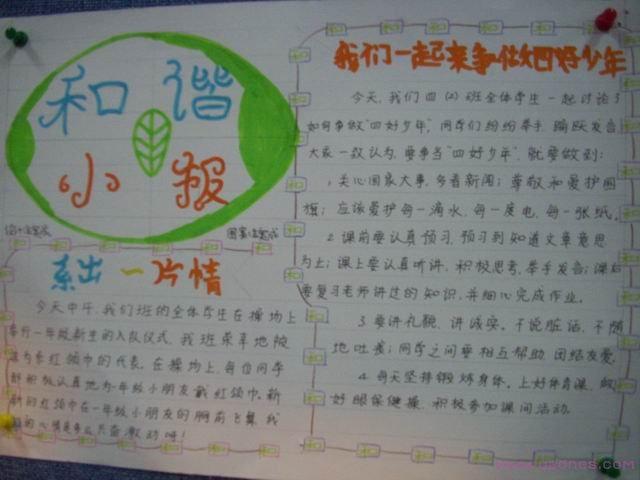 和谐
小报
系出一片情
今天中午,我们班的全体学生在操场上
举行一年级新生的入队仪式,我班荣幸地被
选为系红领巾的代表,在操场上,每位同学
都积极认真地为一年级小朋友戴红领巾,新
新的红领巾在一年级小朋友的胸前飞舞,我
们的心情是多么兴奋激动呀!
我们一起来争做四好少年
今天,我们四(2)班全体学生一起讨论了
如何争做"四好少年",同学们纷纷举手,踊跃发言,
大家一致认为,要争当"四好少年",就要做到:
1.关心国家大事,多看新闻;尊敬和爱护国
旗;应该爱护每一滴水,每一度电,每一张纸。
2.课前要认真预习,预习到知道文章意思
为止;课上要认真听讲,积极思考,举手发言;课后
要复习老师讲过的知识,并细心完成作业。
3.要讲礼貌,讲诚实。不说脏话,不随
地吐痰;同学之间要相互帮助,团结友爱。
4.每天坚持锻炼身体。上好体育课,做
好眼保健操,积极参加课间活动。